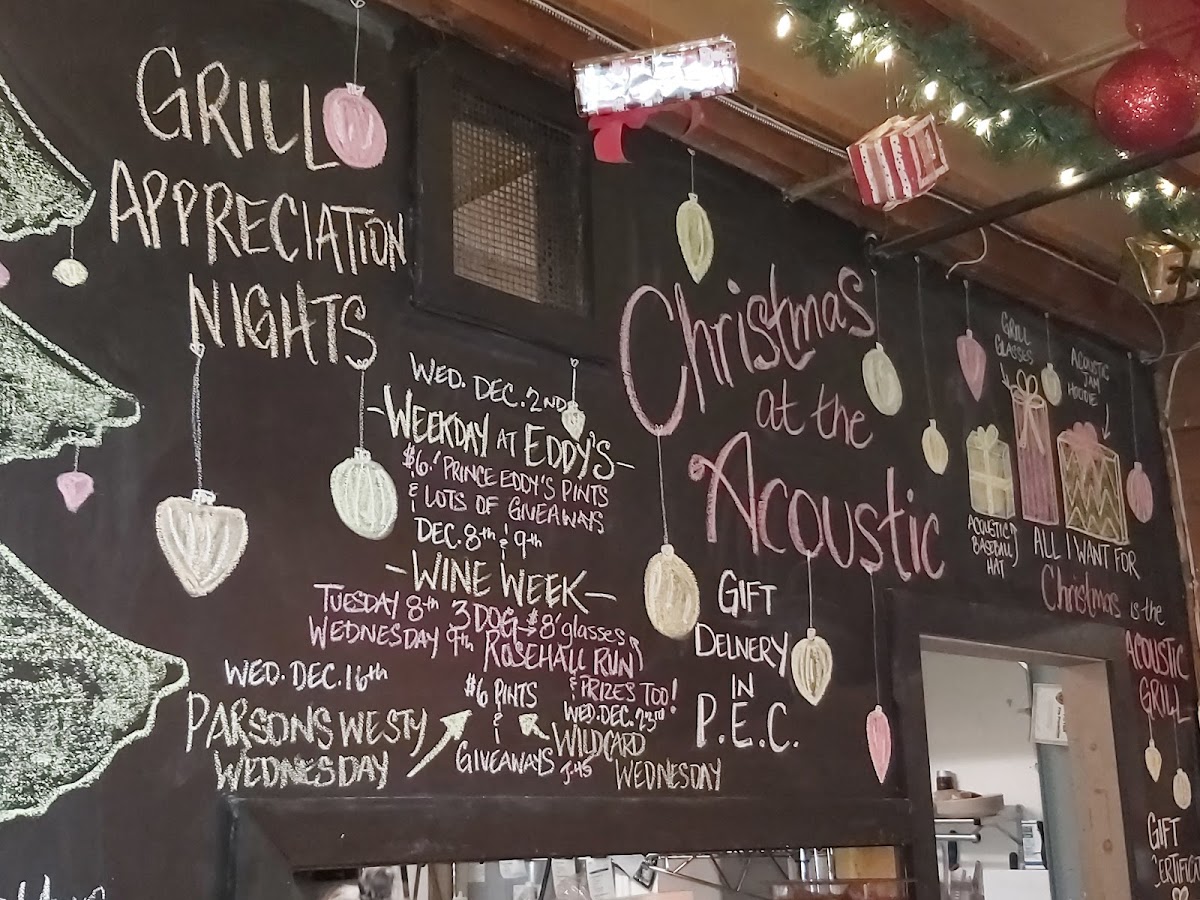 GRILL
APPRECIATION
NIGHTS
WED. DEC. 2ND
-WEEKDAY AT EDDY'S-
$6 PRINCE EDDY'S PINTS
& LOTS OF GIVEAWAYS
DEC. 8th & 9th
-WINE WEEK-
TUESDAY 8th 3 DOG → $8 glasses
WEDNESDAY 9th ROSEHALL RUN
& PRIZES TOO!
WED. DEC. 16th
PARSONS WESTY
WEDNESDAY
$6 PINTS
&
GIVEAWAYS
WED. DEC. 23rd
WILDCARD
WEDNESDAY
Christmas
at the
Acoustic
GIFT
DELIVERY
IN
P.E.C.
GRILL
GLASSES
ACOUSTIC
JAM
HOODIE
ACOUSTIC
BASEBALL
HAT
ALL I WANT FOR
Christmas is the
ACOUSTIC
GRILL
GIFT